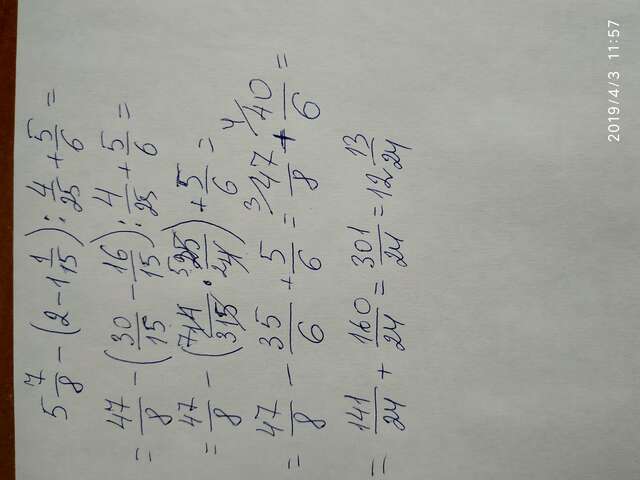 5 7/8 - (2 - 1 1/15) : 4/25 + 5/6 =
= 47/8 - (30/15 - 16/15) : 4/25 + 5/6 =
= 47/8 - (7 14/3 15 · 5 25/2 4) + 5/6 =
= 47/8 - 35/6 + 5/6 = 3/47/8 + 4/40/6 =
= 141/24 + 160/24 = 301/24 = 12 13/24
2019/4/3 11:57